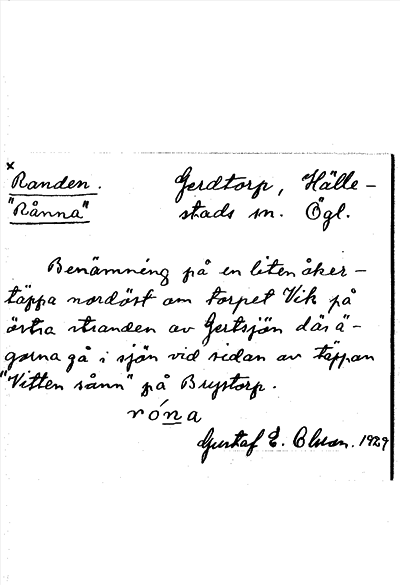 x
Randen. Gerdtorp, Hälle-
"Rånna" stads sn. Ögl.
Benämning på en liten åker-
täppa nordöst om torpet Vik på
östra stranden av Gertsjön där ä-
gorna gå i sjön vid sidan av täppan
"Vitten sånn" på Brystorp.
róna
Gustaf E. Olson. 1929